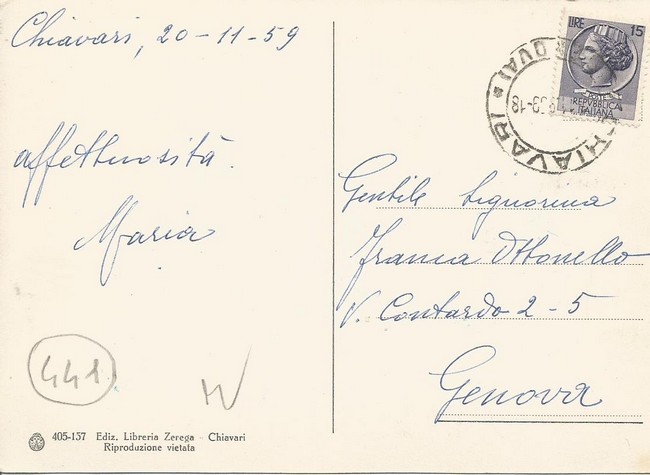 Chiavari, 20-11-59
affettuosità.
Maria
441
405-137 Ediz. Libreria Zerega - Chiavari
Riproduzione vietata
LIRE 15
POSTE
REPVBBLICA
ITALIANA
CHIAVARI
Gentile Signorina
Franca Ottonello
V. Contardo 2-5
Genova